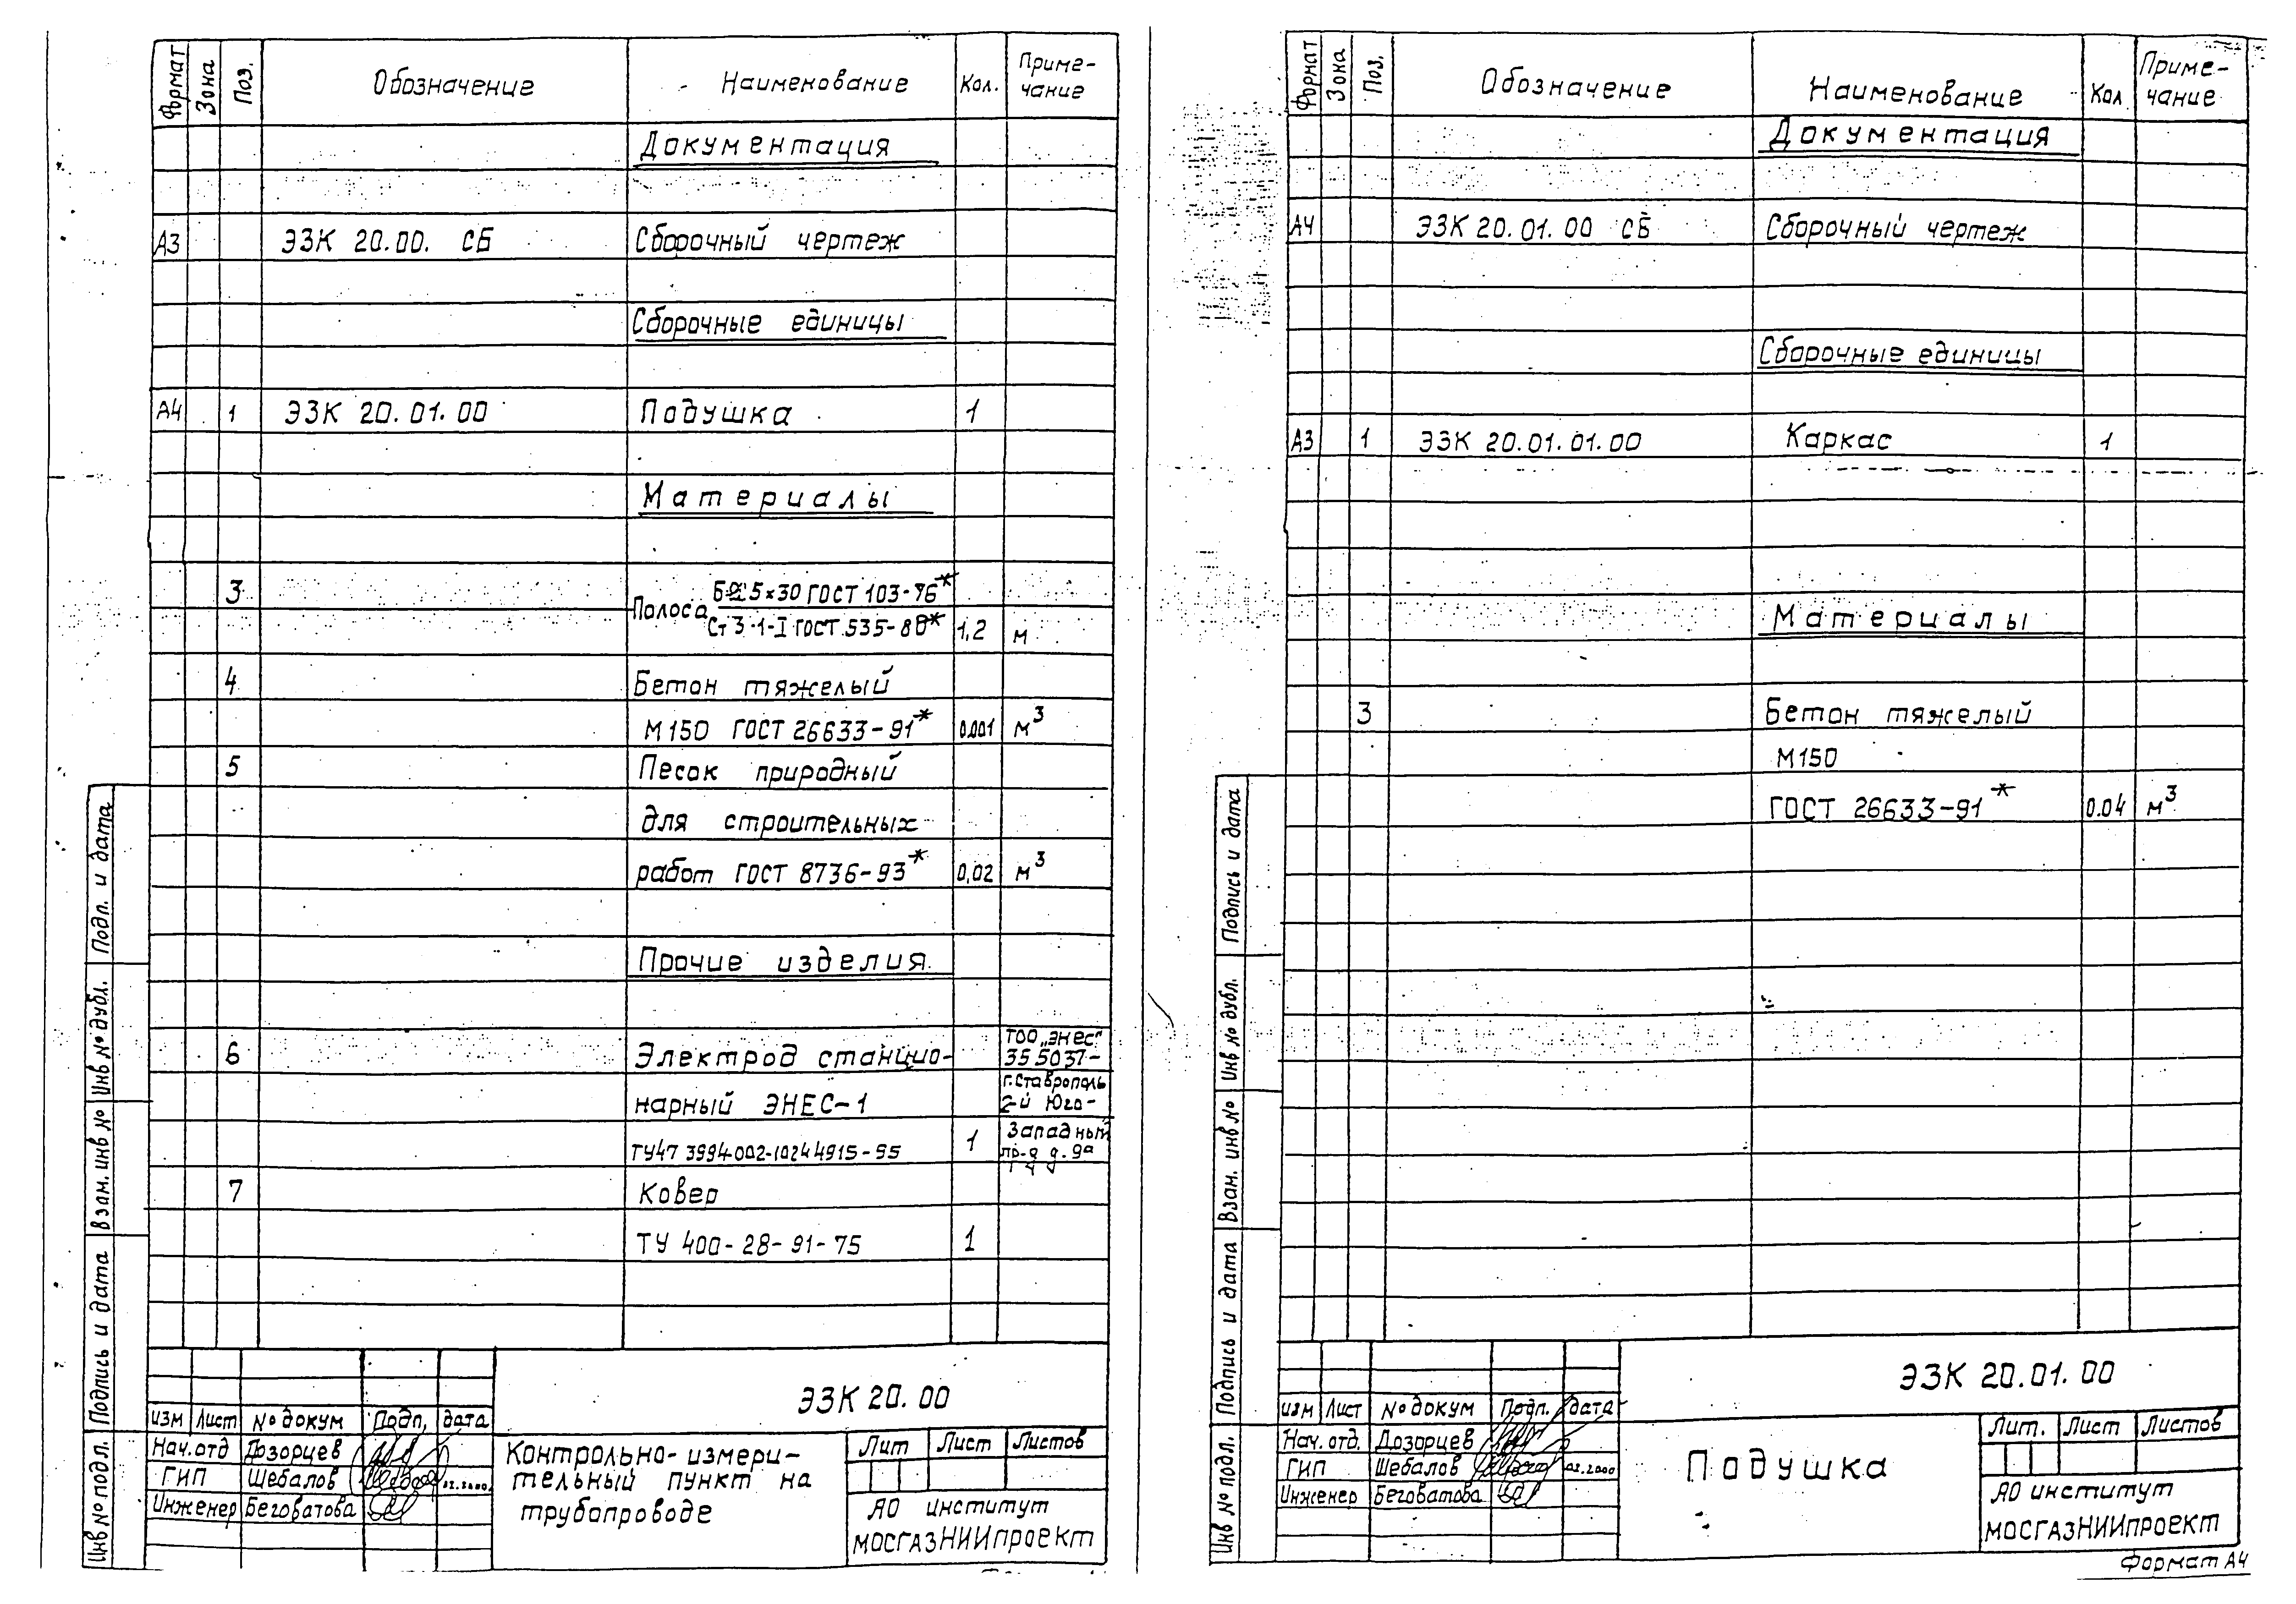 Формат Зона Поз. Обозначение Наименование Кол. Приме-
чание
Документация
А3 ЭЗК 20.00. СБ Сборочный чертеж
Сборочные единицы
А4 1 ЭЗК 20.01.00 Подушка 1
Материалы
3 Полоса 5×30 ГОСТ 103-76*
Ст 3-1-I ГОСТ 535-88* 1,2 м
4 Бетон тяжелый
М150 ГОСТ 26633-91* 0.001 м³
5 Песок природный
для строительных
работ ГОСТ 8736-93* 0,02 м³
Прочие изделия
6 Электрод стацио- ТОО „ЭНЕС"
355037-
нарный ЭНЕС-1 г.Ставрополь
2-й Юго-
ТУ47 3994-002-10244915-95 1 Западный
пр-д д.9а
7 Ковер
ТУ 400-28-91-75 1
Подп. и дата
Инв № дубл.
Взам. инв №
Подпись и дата
Инв № подл.
ЭЗК 20.00
изм Лист № докум Подп. дата
Нач.отд Дозорцев
ГИП Шебалов 02.2000
Инженер Беговатова
Контрольно-измери-
тельный пункт на
трубопроводе
Лит Лист Листов
АО институт
МОСГАЗНИИпроект
Формат Зона Поз. Обозначение Наименование Кол Приме-
чание
Документация
А4 ЭЗК 20.01.00 СБ Сборочный чертеж
Сборочные единицы
А3 1 ЭЗК 20.01.01.00 Каркас 1
Материалы
3 Бетон тяжелый
М150
ГОСТ 26633-91* 0.04 м³
Подпись и дата
Инв № дубл.
Взам. инв №
Подпись и дата
Инв № подл.
ЭЗК 20.01.00
изм Лист № докум Подп. дата
Нач.отд. Дозорцев
ГИП Шебалов 02.2000
Инженер Беговатова
Подушка
Лит. Лист Листов
АО институт
МОСГАЗНИИпроект
Формат А4